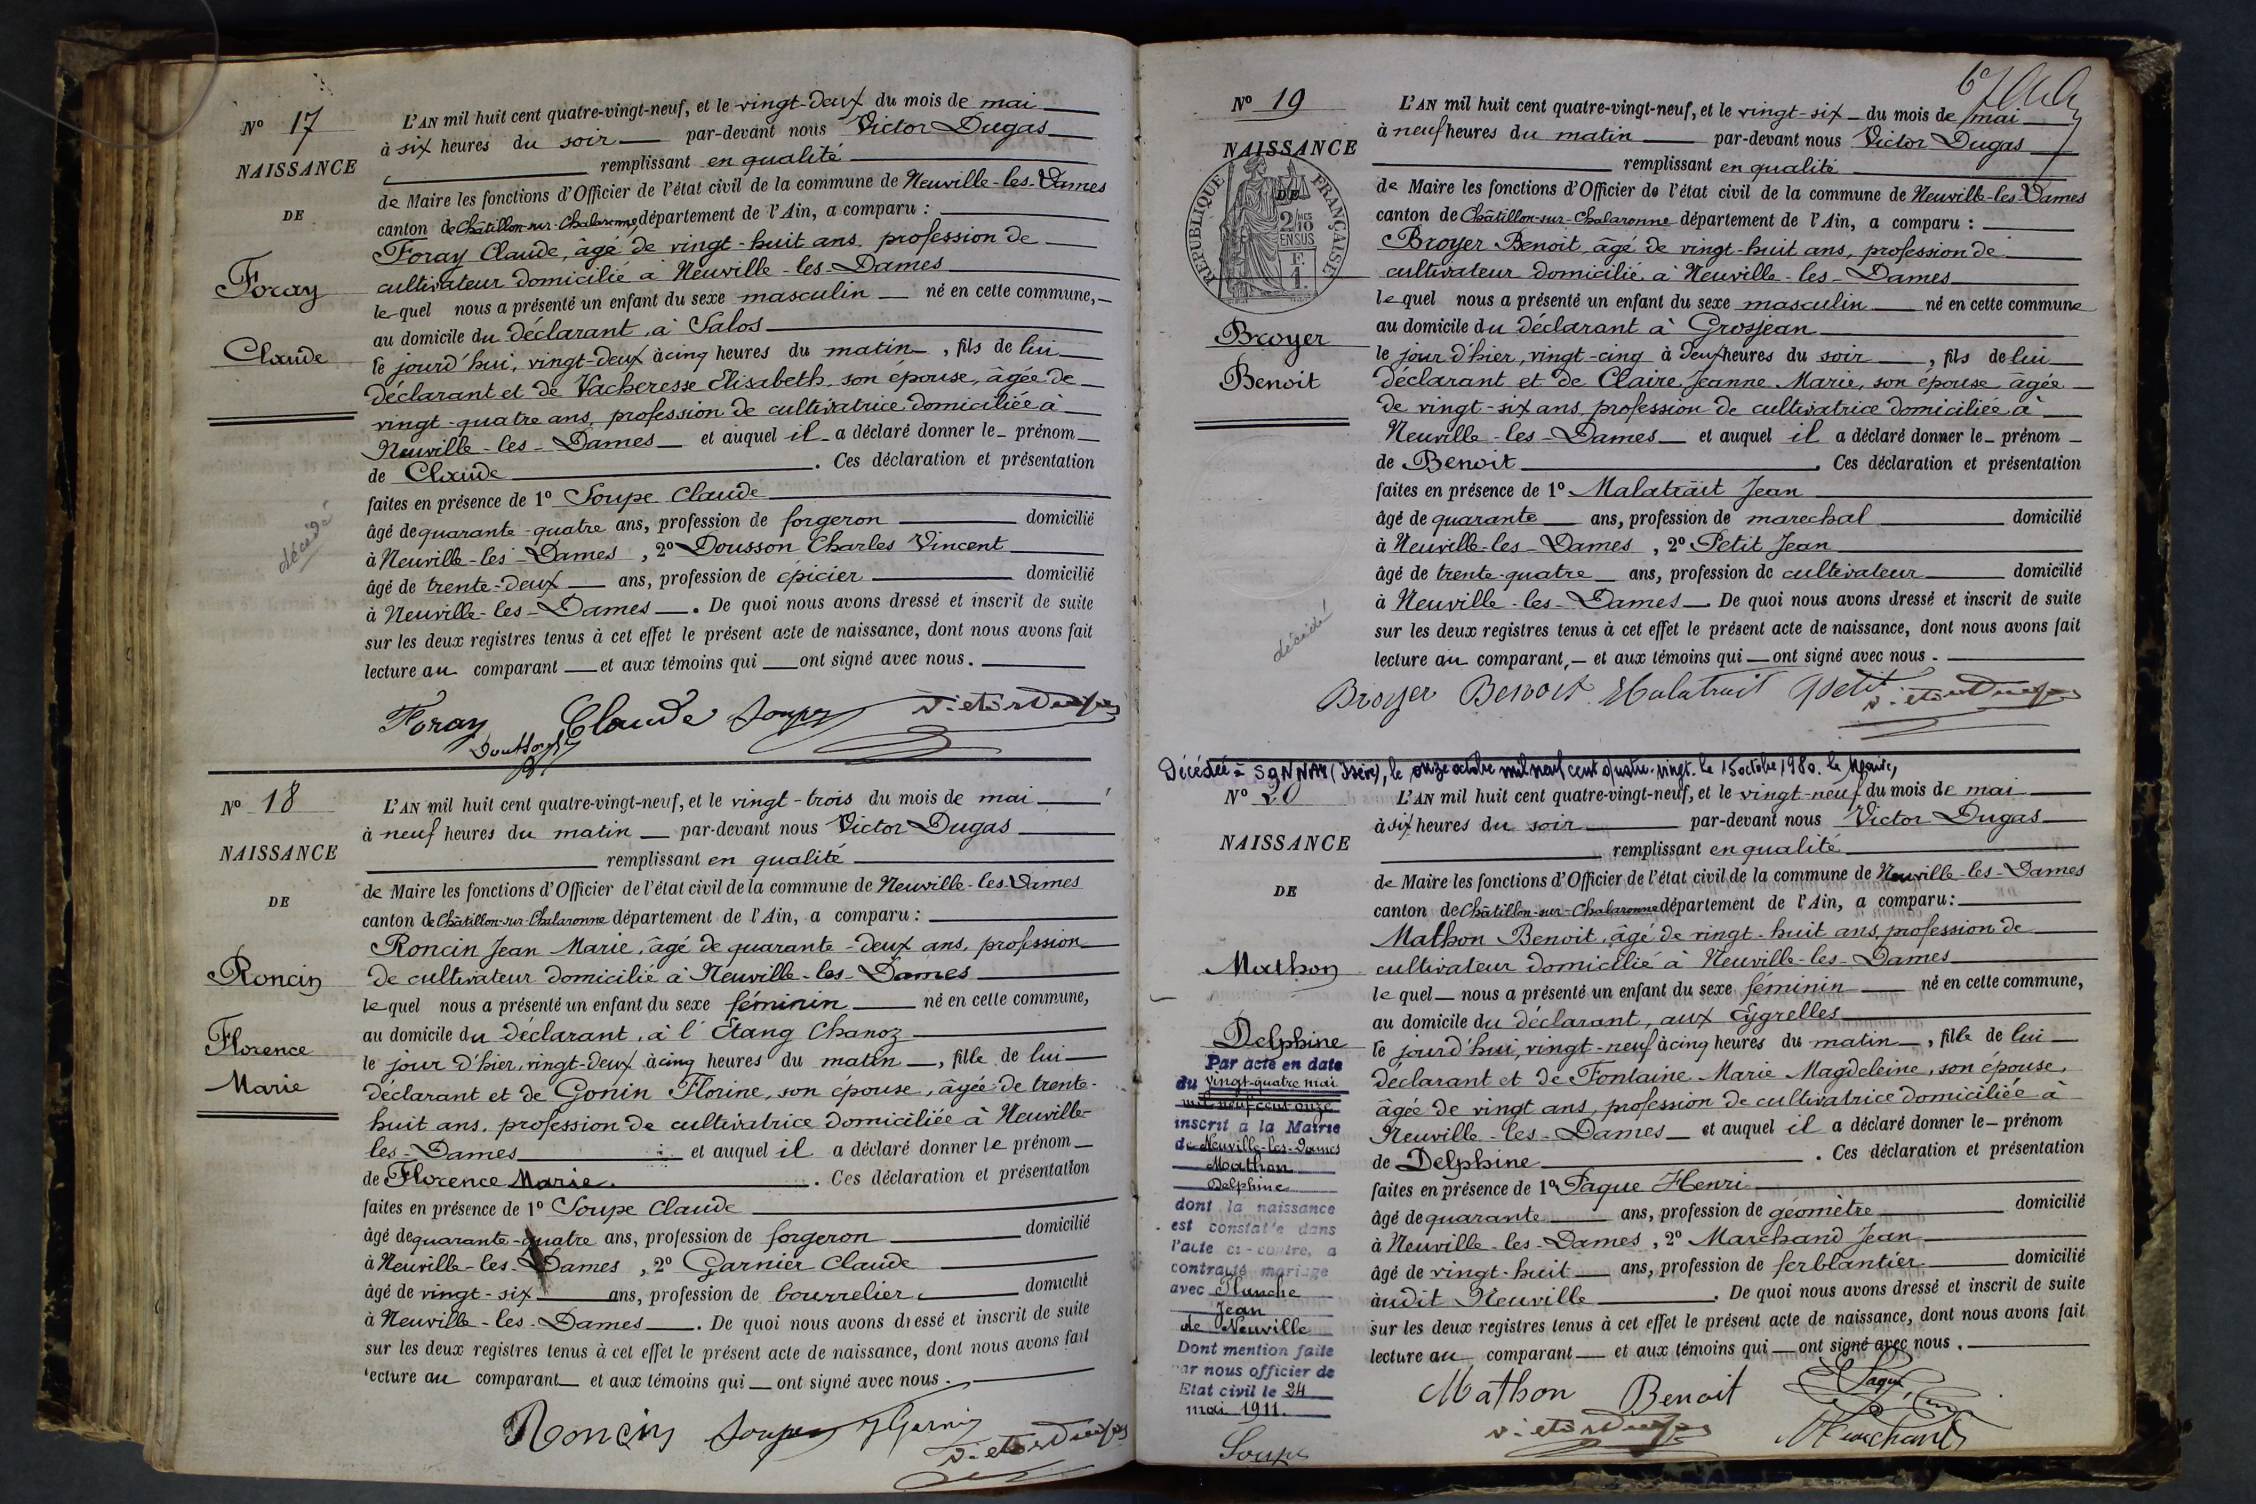 Nº 17
NAISSANCE
DE
Foray
Claude
décédé
L'AN mil huit cent quatre-vingt-neuf, et le vingt-deux du mois de mai
à six heures du soir par-devant nous Victor Dugas
remplissant en qualité
de Maire les fonctions d'Officier de l'état civil de la commune de Neuville-les-Dames
canton de Châtillon-sur-Chalaronne département de l'Ain, a comparu :
Foray Claude, âgé de vingt-huit ans, profession de
cultivateur domicilié à Neuville-les-Dames
lequel nous a présenté un enfant du sexe masculin né en cette commune,
au domicile du déclarant, à Salos
le jourd'hui, vingt-deux à cinq heures du matin, fils de lui
déclarant et de Vacheresse Elisabeth, son épouse, âgée de
vingt-quatre ans, profession de cultivatrice domiciliée à
Neuville-les-Dames et auquel il a déclaré donner le prénom
de Claude. Ces déclaration et présentation
faites en présence de 1º Soupe Claude
âgé de quarante-quatre ans, profession de forgeron domicilié
à Neuville-les-Dames, 2º Dousson Charles Vincent
âgé de trente-deux ans, profession de épicier domicilié
à Neuville-les-Dames. De quoi nous avons dressé et inscrit de suite
sur les deux registres tenus à cet effet le présent acte de naissance, dont nous avons fait
lecture au comparant et aux témoins qui ont signé avec nous.
Foray Claude Soupe Victor Dugas
Dousson
Nº 18
NAISSANCE
DE
Roncin
Florence
Marie
L'AN mil huit cent quatre-vingt-neuf, et le vingt-trois du mois de mai
à neuf heures du matin par-devant nous Victor Dugas
remplissant en qualité
de Maire les fonctions d'Officier de l'état civil de la commune de Neuville-les-Dames
canton de Châtillon-sur-Chalaronne département de l'Ain, a comparu :
Roncin Jean Marie, âgé de quarante-deux ans, profession
de cultivateur domicilié à Neuville-les-Dames
lequel nous a présenté un enfant du sexe féminin né en cette commune,
au domicile du déclarant, à l'Etang Chanoz
le jour d'hier, vingt-deux à cinq heures du matin, fille de lui
déclarant et de Gonin Florine, son épouse, âgée de trente-
huit ans, profession de cultivatrice domiciliée à Neuville-
les-Dames et auquel il a déclaré donner le prénom
de Florence Marie. Ces déclaration et présentation
faites en présence de 1º Soupe Claude
âgé de quarante-quatre ans, profession de forgeron domicilié
à Neuville-les-Dames, 2º Garnier Claude
âgé de vingt-six ans, profession de bourrelier domicilié
à Neuville-les-Dames. De quoi nous avons dressé et inscrit de suite
sur les deux registres tenus à cet effet le présent acte de naissance, dont nous avons fait
lecture au comparant et aux témoins qui ont signé avec nous.
Roncin Soupe Garnier
Victor Dugas
67
Nº 19
NAISSANCE
DE
RÉPUBLIQUE FRANÇAISE
2/10 EN SUS
F.
1.
Broyer
Benoit
décédé
L'AN mil huit cent quatre-vingt-neuf, et le vingt-six du mois de mai
à neuf heures du matin par-devant nous Victor Dugas
remplissant en qualité
de Maire les fonctions d'Officier de l'état civil de la commune de Neuville-les-Dames
canton de Châtillon-sur-Chalaronne département de l'Ain, a comparu :
Broyer Benoit, âgé de vingt-huit ans, profession de
cultivateur domicilié à Neuville-les-Dames
lequel nous a présenté un enfant du sexe masculin né en cette commune
au domicile du déclarant à Grosjean
le jour d'hier, vingt-cinq à deux heures du soir, fils de lui
déclarant et de Claire Jeanne Marie, son épouse âgée
de vingt-six ans, profession de cultivatrice domiciliée à
Neuville-les-Dames et auquel il a déclaré donner le prénom
de Benoit. Ces déclaration et présentation
faites en présence de 1º Malatrait Jean
âgé de quarante ans, profession de marechal domicilié
à Neuville-les-Dames, 2º Petit Jean
âgé de trente-quatre ans, profession de cultivateur domicilié
à Neuville-les-Dames. De quoi nous avons dressé et inscrit de suite
sur les deux registres tenus à cet effet le présent acte de naissance, dont nous avons fait
lecture au comparant, et aux témoins qui ont signé avec nous.
Broyer Benoit Malatrait Petit
Victor Dugas
Décédée à SONNAY (Isère), le onze octobre mil neuf cent quatre-vingt. le 15 octobre 1980. le Maire,
Nº 20
NAISSANCE
DE
Mathon
Delphine
Par acte en date
du vingt-quatre mai
mil neuf cent onze
inscrit à la Mairie
de Neuville-les-Dames
Mathon
Delphine
dont la naissance
est constatée dans
l'acte ci-contre, a
contracté mariage
avec Planche
Jean
de Neuville
Dont mention faite
par nous officier de
Etat civil le 24
mai 1911.
Soupe
L'AN mil huit cent quatre-vingt-neuf, et le vingt-neuf du mois de mai
à six heures du soir par-devant nous Victor Dugas
remplissant en qualité
de Maire les fonctions d'Officier de l'état civil de la commune de Neuville-les-Dames
canton de Châtillon-sur-Chalaronne département de l'Ain, a comparu :
Mathon Benoit, âgé de vingt-huit ans, profession de
cultivateur domicilié à Neuville-les-Dames
lequel nous a présenté un enfant du sexe féminin né en cette commune,
au domicile du déclarant, aux Eygrelles
le jourd'hui, vingt-neuf à cinq heures du matin, fille de lui
déclarant et de Fontaine Marie Magdeleine, son épouse,
âgée de vingt ans, profession de cultivatrice domiciliée à
Neuville-les-Dames et auquel il a déclaré donner le prénom
de Delphine. Ces déclaration et présentation
faites en présence de 1º Paque Henri
âgé de quarante ans, profession de géomètre domicilié
à Neuville-les-Dames, 2º Marchand Jean
âgé de vingt-huit ans, profession de ferblantier domicilié
àudit Neuville. De quoi nous avons dressé et inscrit de suite
sur les deux registres tenus à cet effet le présent acte de naissance, dont nous avons fait
lecture au comparant et aux témoins qui ont signé avec nous.
Mathon Benoit Paque
Victor Dugas Marchand